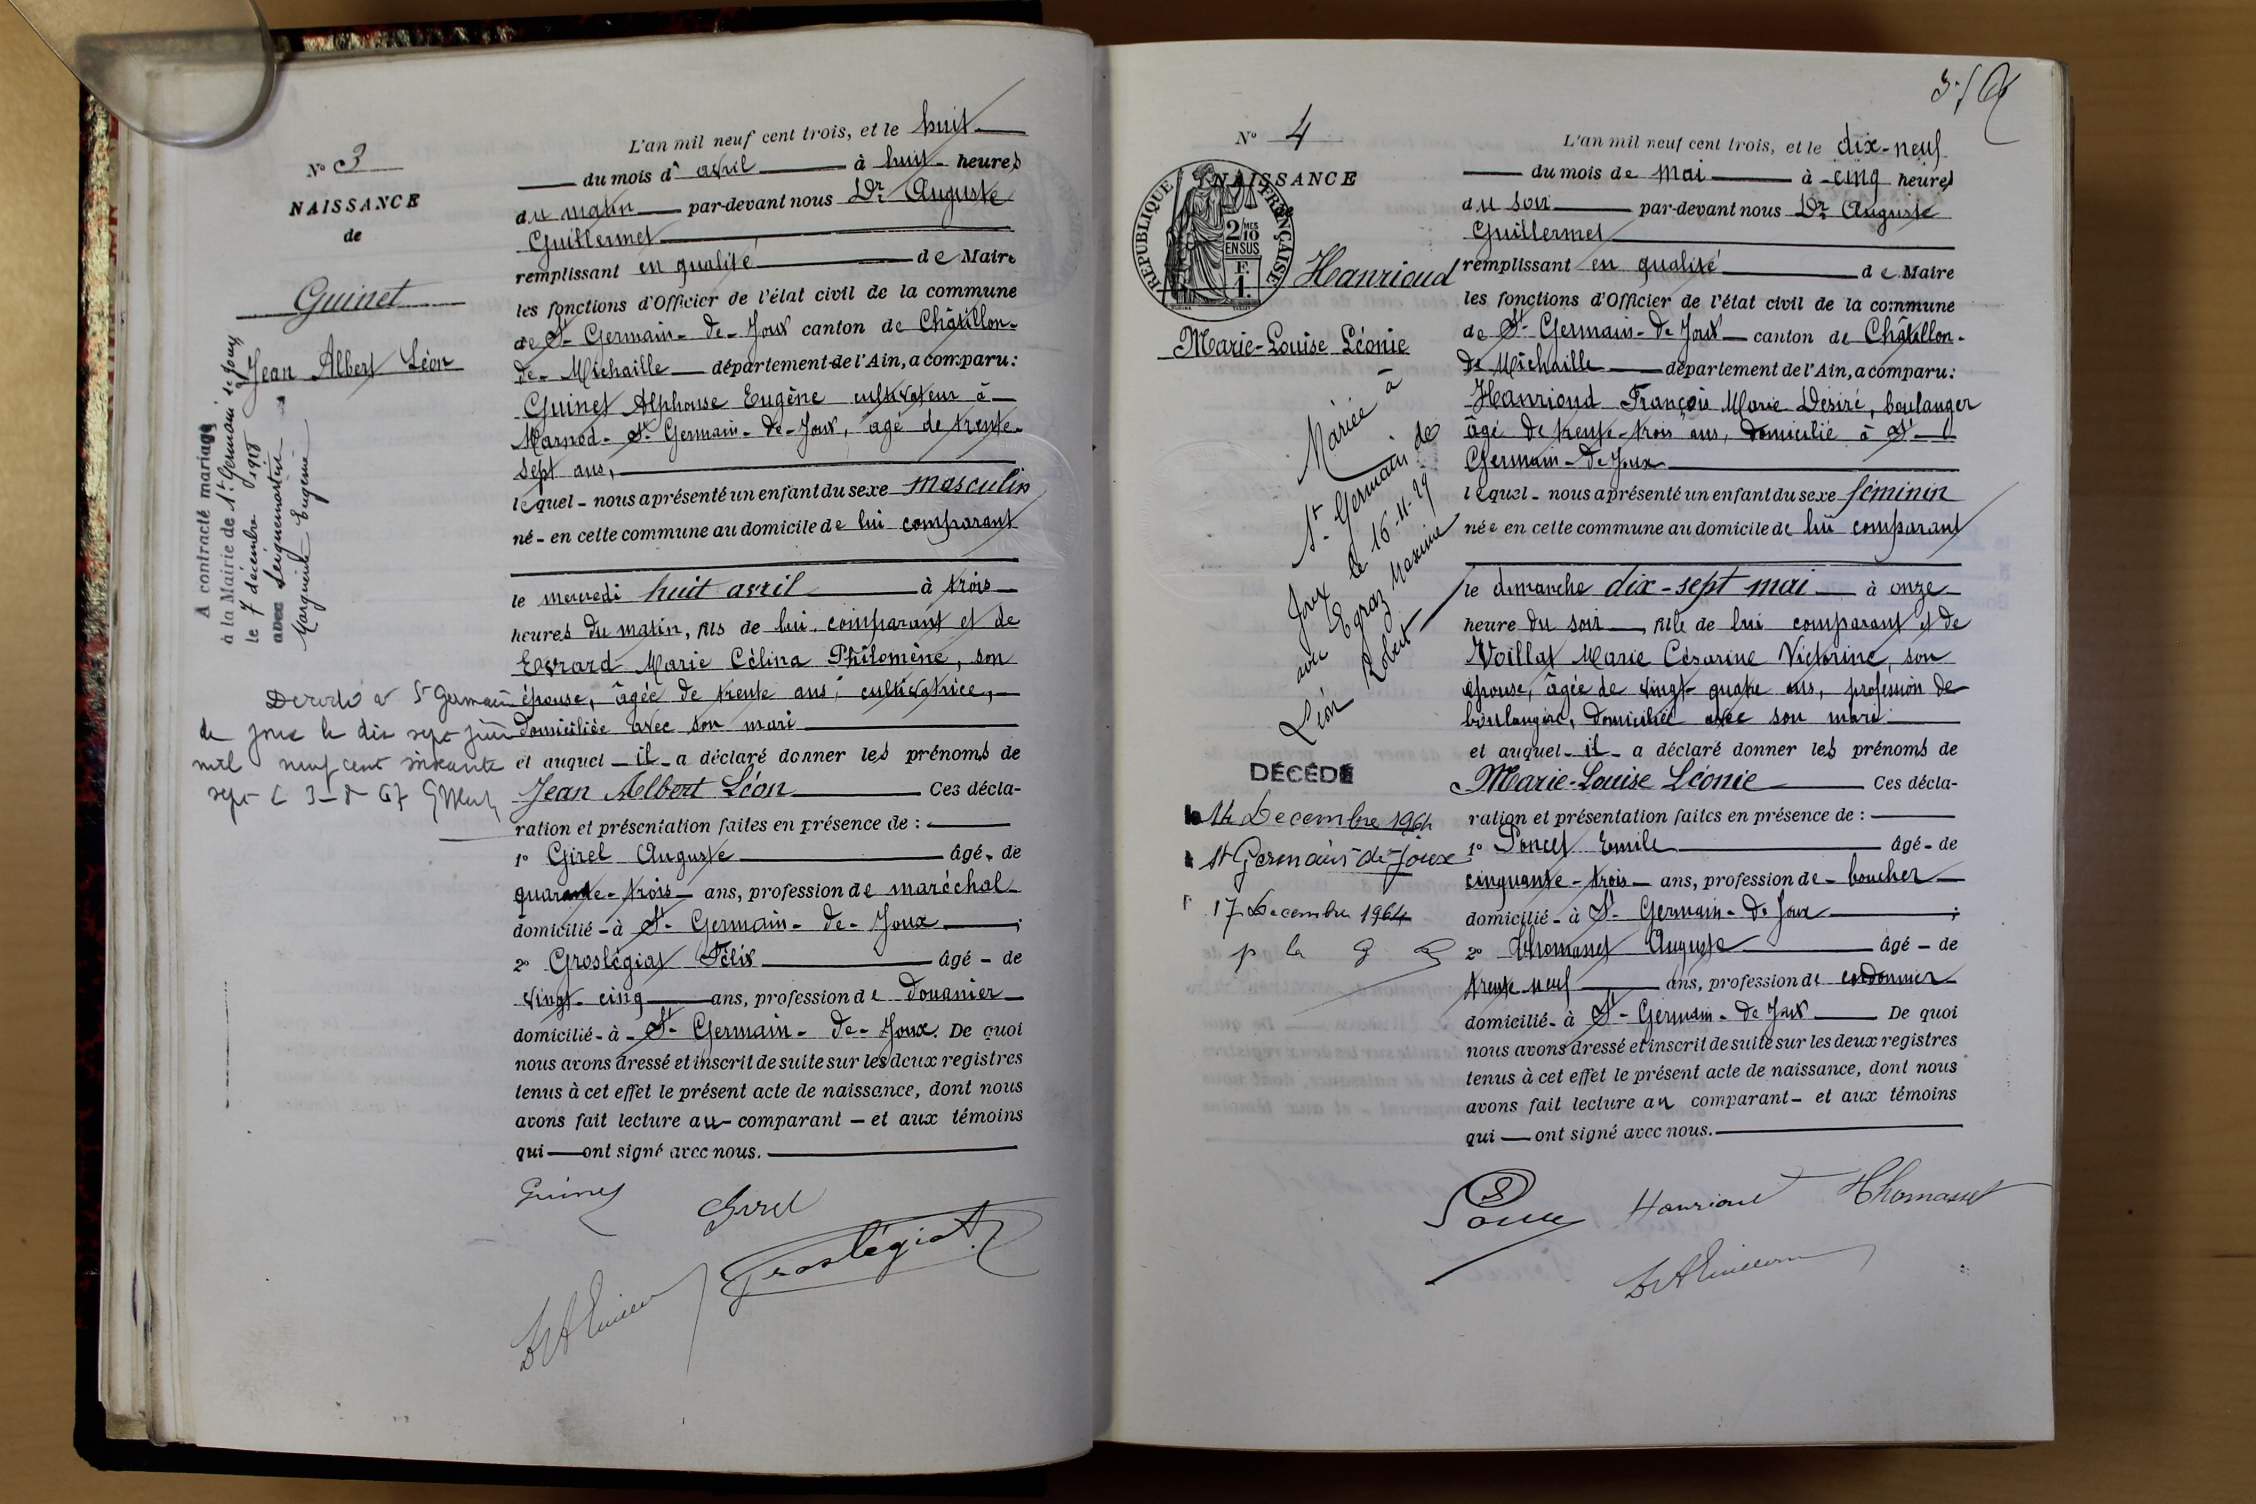 N° 3
NAISSANCE
de
Guinet
Jean Albert Léon
A contracté mariage
à la Mairie de St Germain de Joux
le 7 décembre 1928
avec Seignemartin
Marguerite Eugénie
Décédé à St Germain
de Joux le dix sept juin
mil neuf cent soixante
sept
L'an mil neuf cent trois, et le huit
du mois d' avril à huit heures
du matin par-devant nous Dr Auguste
Guillermet
remplissant en qualité de Maire
les fonctions d'Officier de l'état civil de la commune
de St-Germain-de-Joux canton de Châtillon-
de-Michaille département de l'Ain, a comparu:
Guinet Alphonse Eugène cultivateur à
Marnod-St-Germain-de-Joux, âgé de trente-
sept ans,
lequel nous a présenté un enfant du sexe masculin
né en cette commune au domicile de lui comparant
le mercredi huit avril à trois
heures du matin, fils de lui comparant et de
Evrard Marie Célina Philomène, son
épouse, âgée de trente ans, cultivatrice,
domiciliée avec son mari
et auquel il a déclaré donner les prénoms de
Jean Albert Léon Ces décla-
ration et présentation faites en présence de :
1° Girel Auguste âgé de
quarante-trois ans, profession de maréchal
domicilié à St-Germain-de-Joux ;
2° Groslégiat Félix âgé de
vingt-cinq ans, profession de douanier
domicilié à St-Germain-de-Joux. De quoi
nous avons dressé et inscrit de suite sur les deux registres
tenus à cet effet le présent acte de naissance, dont nous
avons fait lecture au comparant et aux témoins
qui ont signé avec nous.
Guinet Girel
Groslégiat
N° 4
NAISSANCE
RÉPUBLIQUE FRANÇAISE
2/10MES
EN SUS
F.
1.
Hanrioud
Marie-Louise Léonie
Mariée à
St Germain de
Joux le 16-11-29
avec Egraz Maxime
Léon Robert
DÉCÉDÉ
le 14 Decembre 1964
à St Germain-de-Joux
17 Decembre 1964
L'an mil neuf cent trois, et le dix-neuf
du mois de mai à cinq heures
du soir par-devant nous Dr Auguste
Guillermet
remplissant en qualité de Maire
les fonctions d'Officier de l'état civil de la commune
de St-Germain-de Joux canton de Châtillon-
de Michaille département de l'Ain, a comparu:
Hanrioud François Marie Désiré, boulanger
âgé de trente-trois ans, domicilié à St
Germain-de Joux
lequel nous a présenté un enfant du sexe féminin
née en cette commune au domicile de lui comparant
le dimanche dix-sept mai à onze
heure du soir, fille de lui comparant et de
Voillat Marie Césarine Victorine, son
épouse, âgée de vingt-quatre ans, profession de
boulangère, domiciliée avec son mari
et auquel il a déclaré donner les prénoms de
Marie-Louise Léonie Ces décla-
ration et présentation faites en présence de :
1° Poncet Emile âgé de
cinquante-trois ans, profession de boucher
domicilié à St-Germain-de Joux ;
2° Thomasset Auguste âgé de
trente neuf ans, profession de cordonnier
domicilié à St-Germain-de Joux De quoi
nous avons dressé et inscrit de suite sur les deux registres
tenus à cet effet le présent acte de naissance, dont nous
avons fait lecture au comparant et aux témoins
qui ont signé avec nous.
Hanrioud Thomasset